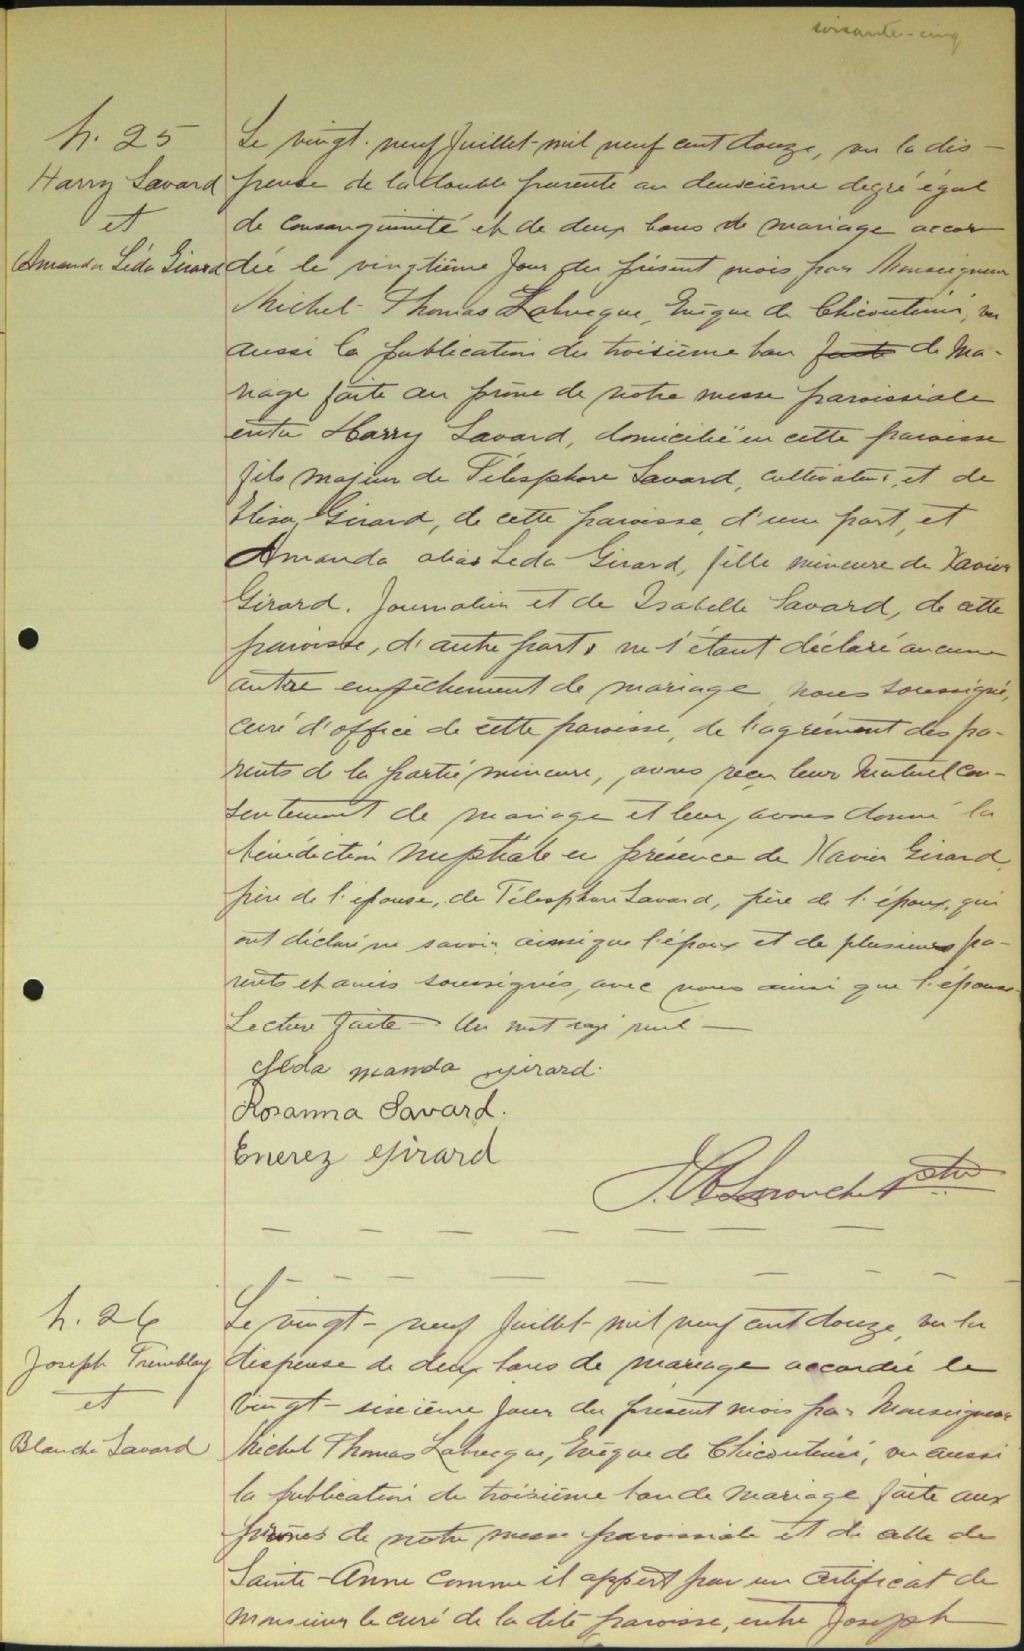 soixante-cinq
h. 25
Harry Savard
et
Amanda Léda Girard
Le vingt-neuf Juillet mil neuf cent douze, vu la dis-
pense de la double parenté au deuxième degré égal
de consanguinité et de deux bans de mariage accor
dée le vingtième jour du présent mois par Monseigneur
Michel-Thomas Labrecque, Evêque de Chicoutimi, vu
aussi la publication du troisième ban faite de Ma-
riage faite au prône de notre messe paroissiale
entre Harry Savard, domicilié en cette paroisse
fils majeur de Télesphore Savard, cultivateur, et de
Elisa Girard, de cette paroisse, d'une part, et
Amanda alias Leda Girard, fille mineure de Xavier
Girard, Journalier et de Isabelle Savard, de cette
paroisse, d'autre part, ne s'étant déclaré aucun
autre empêchement de mariage, nous soussigné,
curé d'office de cette paroisse, de l'agrément des pa-
rents de la partie mineure, avons reçu leur Mutuel con-
sentement de mariage et leur avons donné la
bénédiction nuptiale en présence de Xavier Girard,
père de l'épouse, de Télesphore Savard, père de l'époux, qui
ont déclaré ne savoir ainsi que l'époux et de plusieurs pa-
rents et amis soussignés, avec nous ainsi que l'épouse.
Lecture faite - Un mot rayé nul -
Léda manda Girard.
Rosanna Savard.
Enerez Girard
ptre
h. 26
Joseph Tremblay
et
Blanche Savard
Le vingt-neuf Juillet mil neuf cent douze, vu la
dispense de deux bans de mariage accordée le
vingt-sixième jour du présent mois par Monseigneur
Michel Thomas Labrecque, Evêque de Chicoutimi, vu aussi
la publication du troisième ban de Mariage faite aux
prônes de notre messe paroissiale et de celle de
Sainte-Anne comme il appert par un certificat de
Monsieur le curé de la dite paroisse, entre Joseph